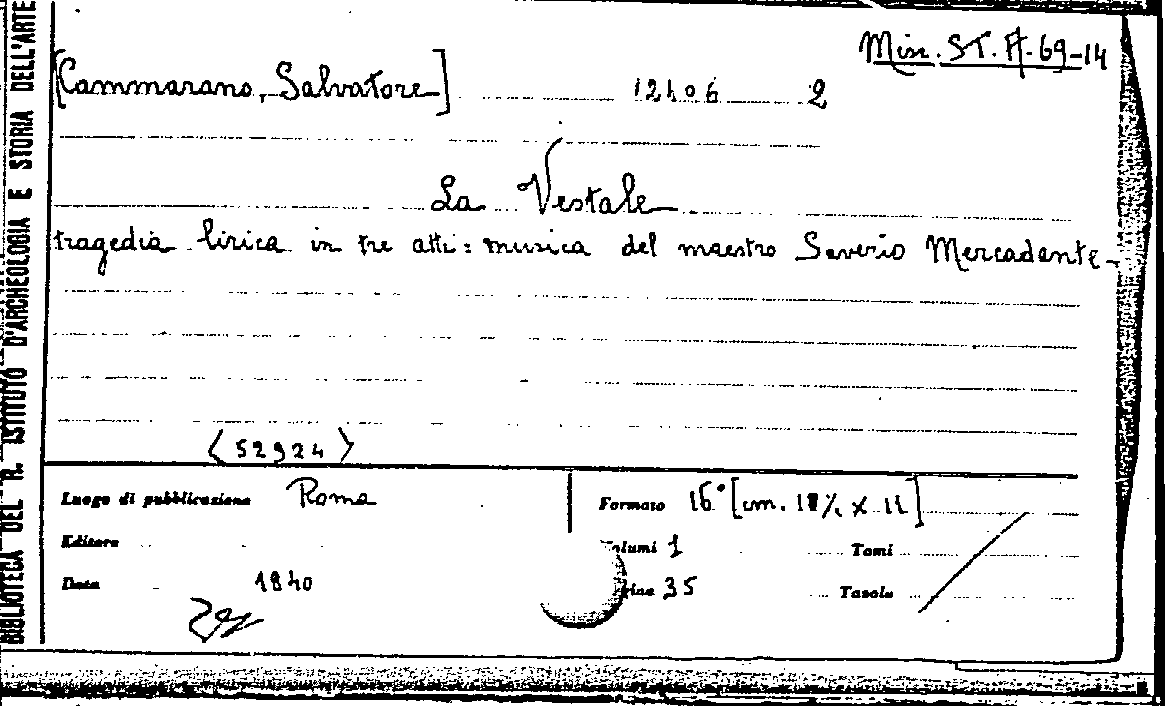 Misc. ST. A-69-14
[Cammarano, Salvatore] 12406 2
La Vestale
tragedia lirica in tre atti: musica del maestro Saverio Mercadante-
<52924>
Luogo di pubblicazione Roma
Formato 16° [cm. x 11]
Editore
Volumi 1 Tomi
Data 1840
gine 35 Tavole
BIBLIOTECA DEL R. ISTITUTO D'ARCHEOLOGIA E STORIA DELL'ARTE